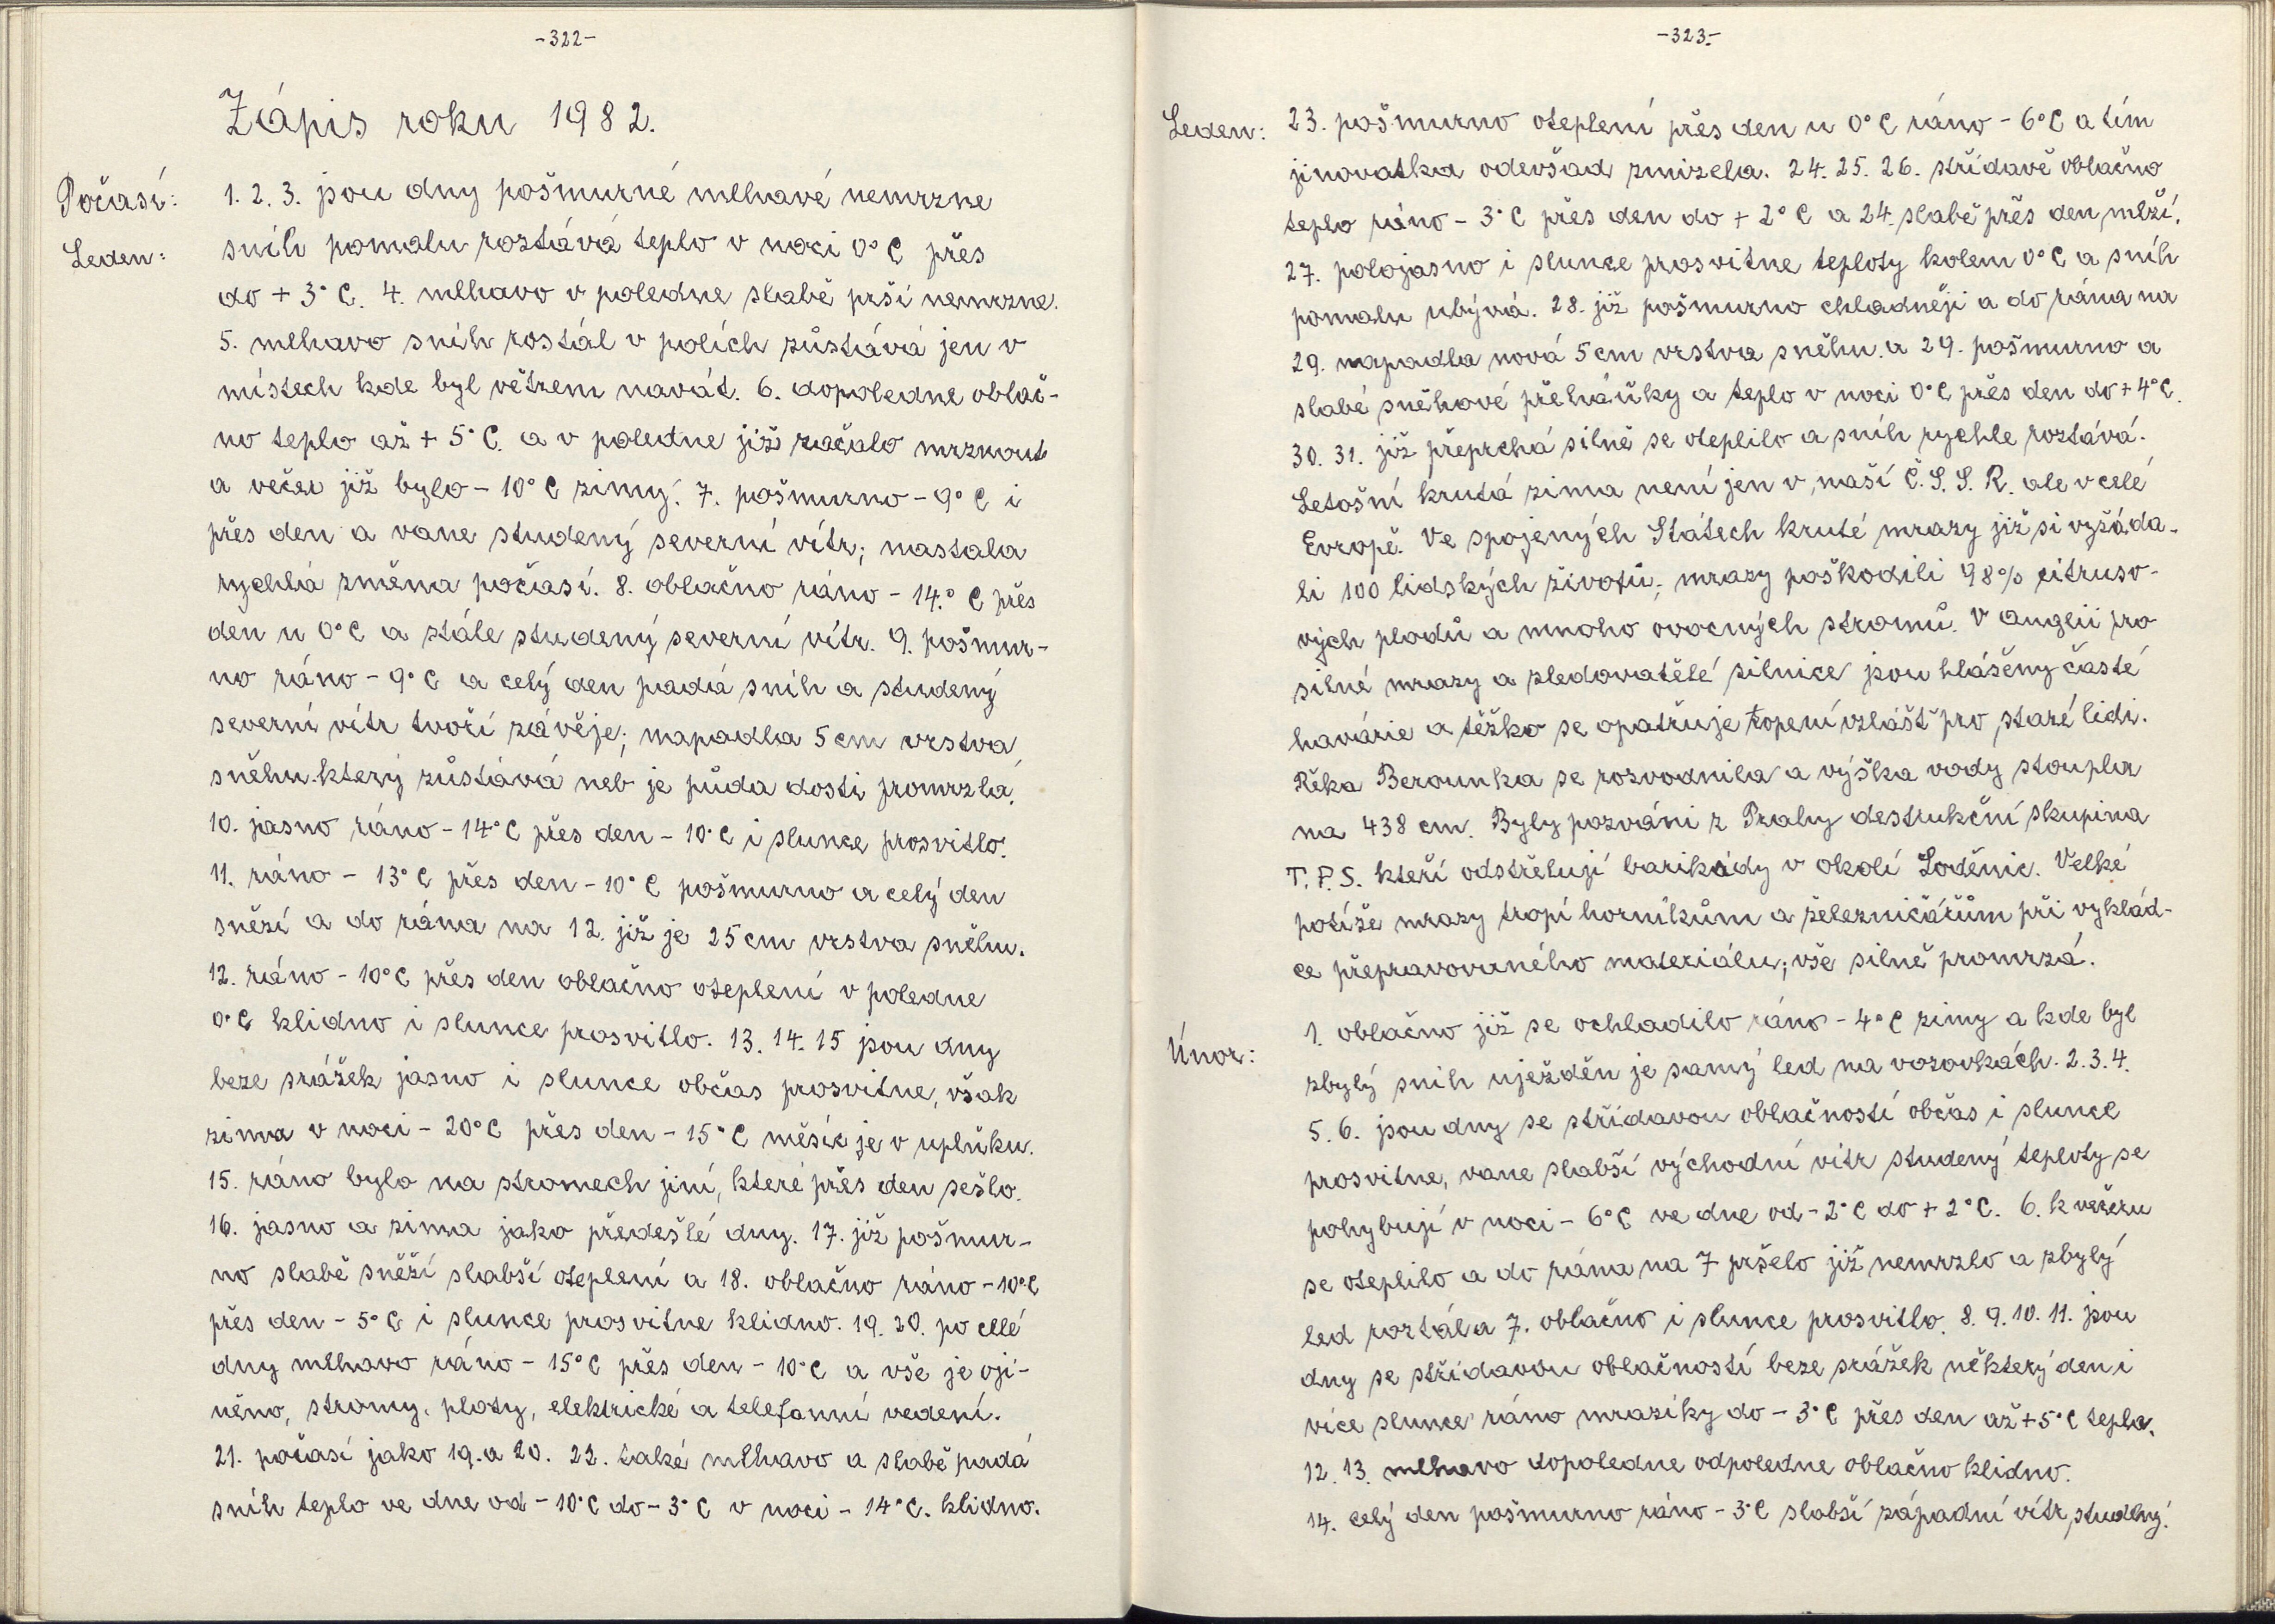 -322-
Zápis roku 1982.
Počasí: 1. 2. 3. jsou dny pošmurné mlhavé nemrzne
Leden: sníh pomalu roztává teplo v noci 0°C přes
do + 3°C. 4. mlhavo v poledne slabě prší nemrzne.
5. mlhavo sníh rostál v polích zůstává jen v
místech kde byl větrem navát. 6. dopoledne oblač-
no teplo až + 5°C. a v poledne již začalo mrznout
a večer již bylo - 10°C zimy. 7. pošmurno - 9°C i
přes den a vane studený severní vítr; nastala
rychlá změna počasí. 8. oblačno ráno - 14.°C přes
den u 0°C a stále studený severní vítr. 9. pošmur-
no ráno - 9°C a celý den padá sníh a studený
severní vítr tvoří závěje; napadla 5 cm vrstva
sněhu který zůstává neb je půda dosti promrzlá.
10. jasno ráno - 14°C přes den - 10°C i slunce prosvitlo.
11. ráno - 13°C přes den - 10°C pošmurno a celý den
sněží a do rána na 12. již je 25 cm vrstva sněhu.
12. ráno - 10°C přes den oblačno oteplení v poledne
0°C klidno i slunce prosvitlo. 13. 14. 15 jsou dny
beze srážek jasno i slunce občas prosvitne, však
zima v noci - 20°C přes den - 15°C měsíc je v uplňku.
15. ráno bylo na stromech jiní, které přes den sešlo.
16. jasno a zima jako předešlé dny. 17. již pošmur-
no slabě sněží slabší oteplení a 18. oblačno ráno - 10°C
přes den - 5°C i slunce prosvitne klidno. 19. 20. po celé
dny mlhavo ráno - 15°C přes den - 10°C a vše je oji-
něno, stromy, ploty, elektrické a telefonní vedení.
21. počasí jako 19. a 20. 22. také mlhavo a slabě padá
sníh teplo ve dne od - 10°C do - 3°C v noci - 14°C. klidno.
-323-
Leden: 23. pošmurno oteplení přes den u 0°C ráno - 6°C a tím
jinovatka odevšad zmizela. 24. 25. 26. střídavě oblačno
teplo ráno - 3°C přes den do + 2°C a 24. slabě přes den mlží.
27. polojasno i slunce prosvitne teploty kolem 0°C a sníh
pomalu ubývá. 28. již pošmurno chladněji a do rána na
29. napadla nová 5 cm vrstva sněhu. a 29. pošmurno a
slabé sněhové přeháňky a teplo v noci 0°C přes den do + 4°C.
30. 31. již přeprchá silně se oteplilo a sníh rychle roztává.
Letošní krutá zima není jen v naší Č. S. S. R. ale v celé
Evropě. Ve spojených Státech kruté mrazy již si vyžáda-
li 100 lidských životů; mrazy poškodili 98% citruso-
vých plodů a mnoho ovocných stromů. V Anglii pro
silné mrazy a zledovatělé silnice jsou hlášeny časté
havárie a těžko se opatřuje topení vzlášť pro staré lidi.
Řěka Berounka se rozvodnila a výška vody stoupla
na 438 cm. Byly pozváni z Prahy destrukční skupina
T. P. S. kteří odstřelují barikády v okolí Loděnic. Velké
potíže mrazy tropí horníkům a železničářům při vyklád-
ce přepravovaného materiálu; vše silně promrzá.
Únor: 1. oblačno již se ochladilo ráno - 4°C zimy a kde byl
zbylý sníh uježděn je samý led na vozovkách. 2. 3. 4.
5. 6. jsou dny se střídavou oblačností občas i slunce
prosvitne, vane slabší východní vítr studený teploty se
pohybují v noci - 6°C ve dne od - 2°C do + 2°C. 6. k večeru
se oteplilo a do rána na 7 pršelo již nemrzlo a zbylý
led roztál a 7. oblačno i slunce prosvitlo. 8. 9. 10. 11. jsou
dny se střídavou oblačností beze srážek některý den i
více slunce ráno mrazíky do - 3°C přes den až + 5°C tepla.
12. 13. mlhavo dopoledne odpoledne oblačno klidno.
14. celý den pošmurno ráno - 3°C slabší západní vítr studený.